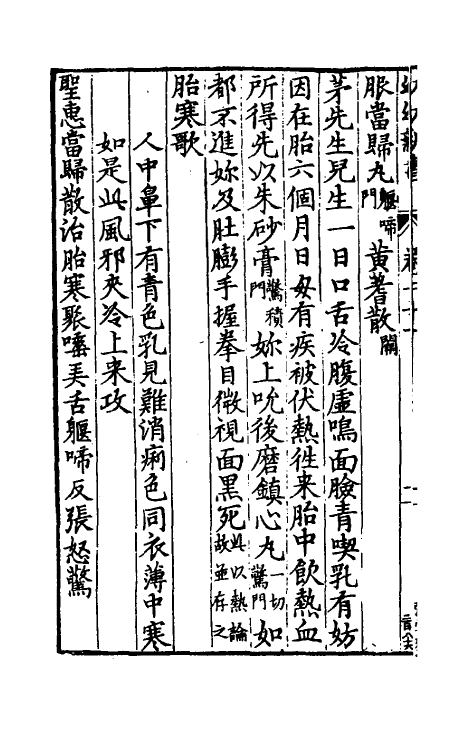 服當歸丸軀啼門黃蓍散闕
茅先生兒生一日口舌冷腹虛鳴面臉青喫乳有妨
因在胎六個月日母有疾被伏熱徃来胎中飲熱血
所得先以朱砂膏驚積門妳上吮後磨鎮心丸一切驚門如
都不進妳及肚膨手握拳目微視面黑死此以熱論故並存之
胎寒歌
人中鼻下有青色乳見難消痢色同衣薄中寒
如是此風邪夾冷上来攻
聖惠當歸散治胎寒聚唾弄舌軀啼反張怒驚